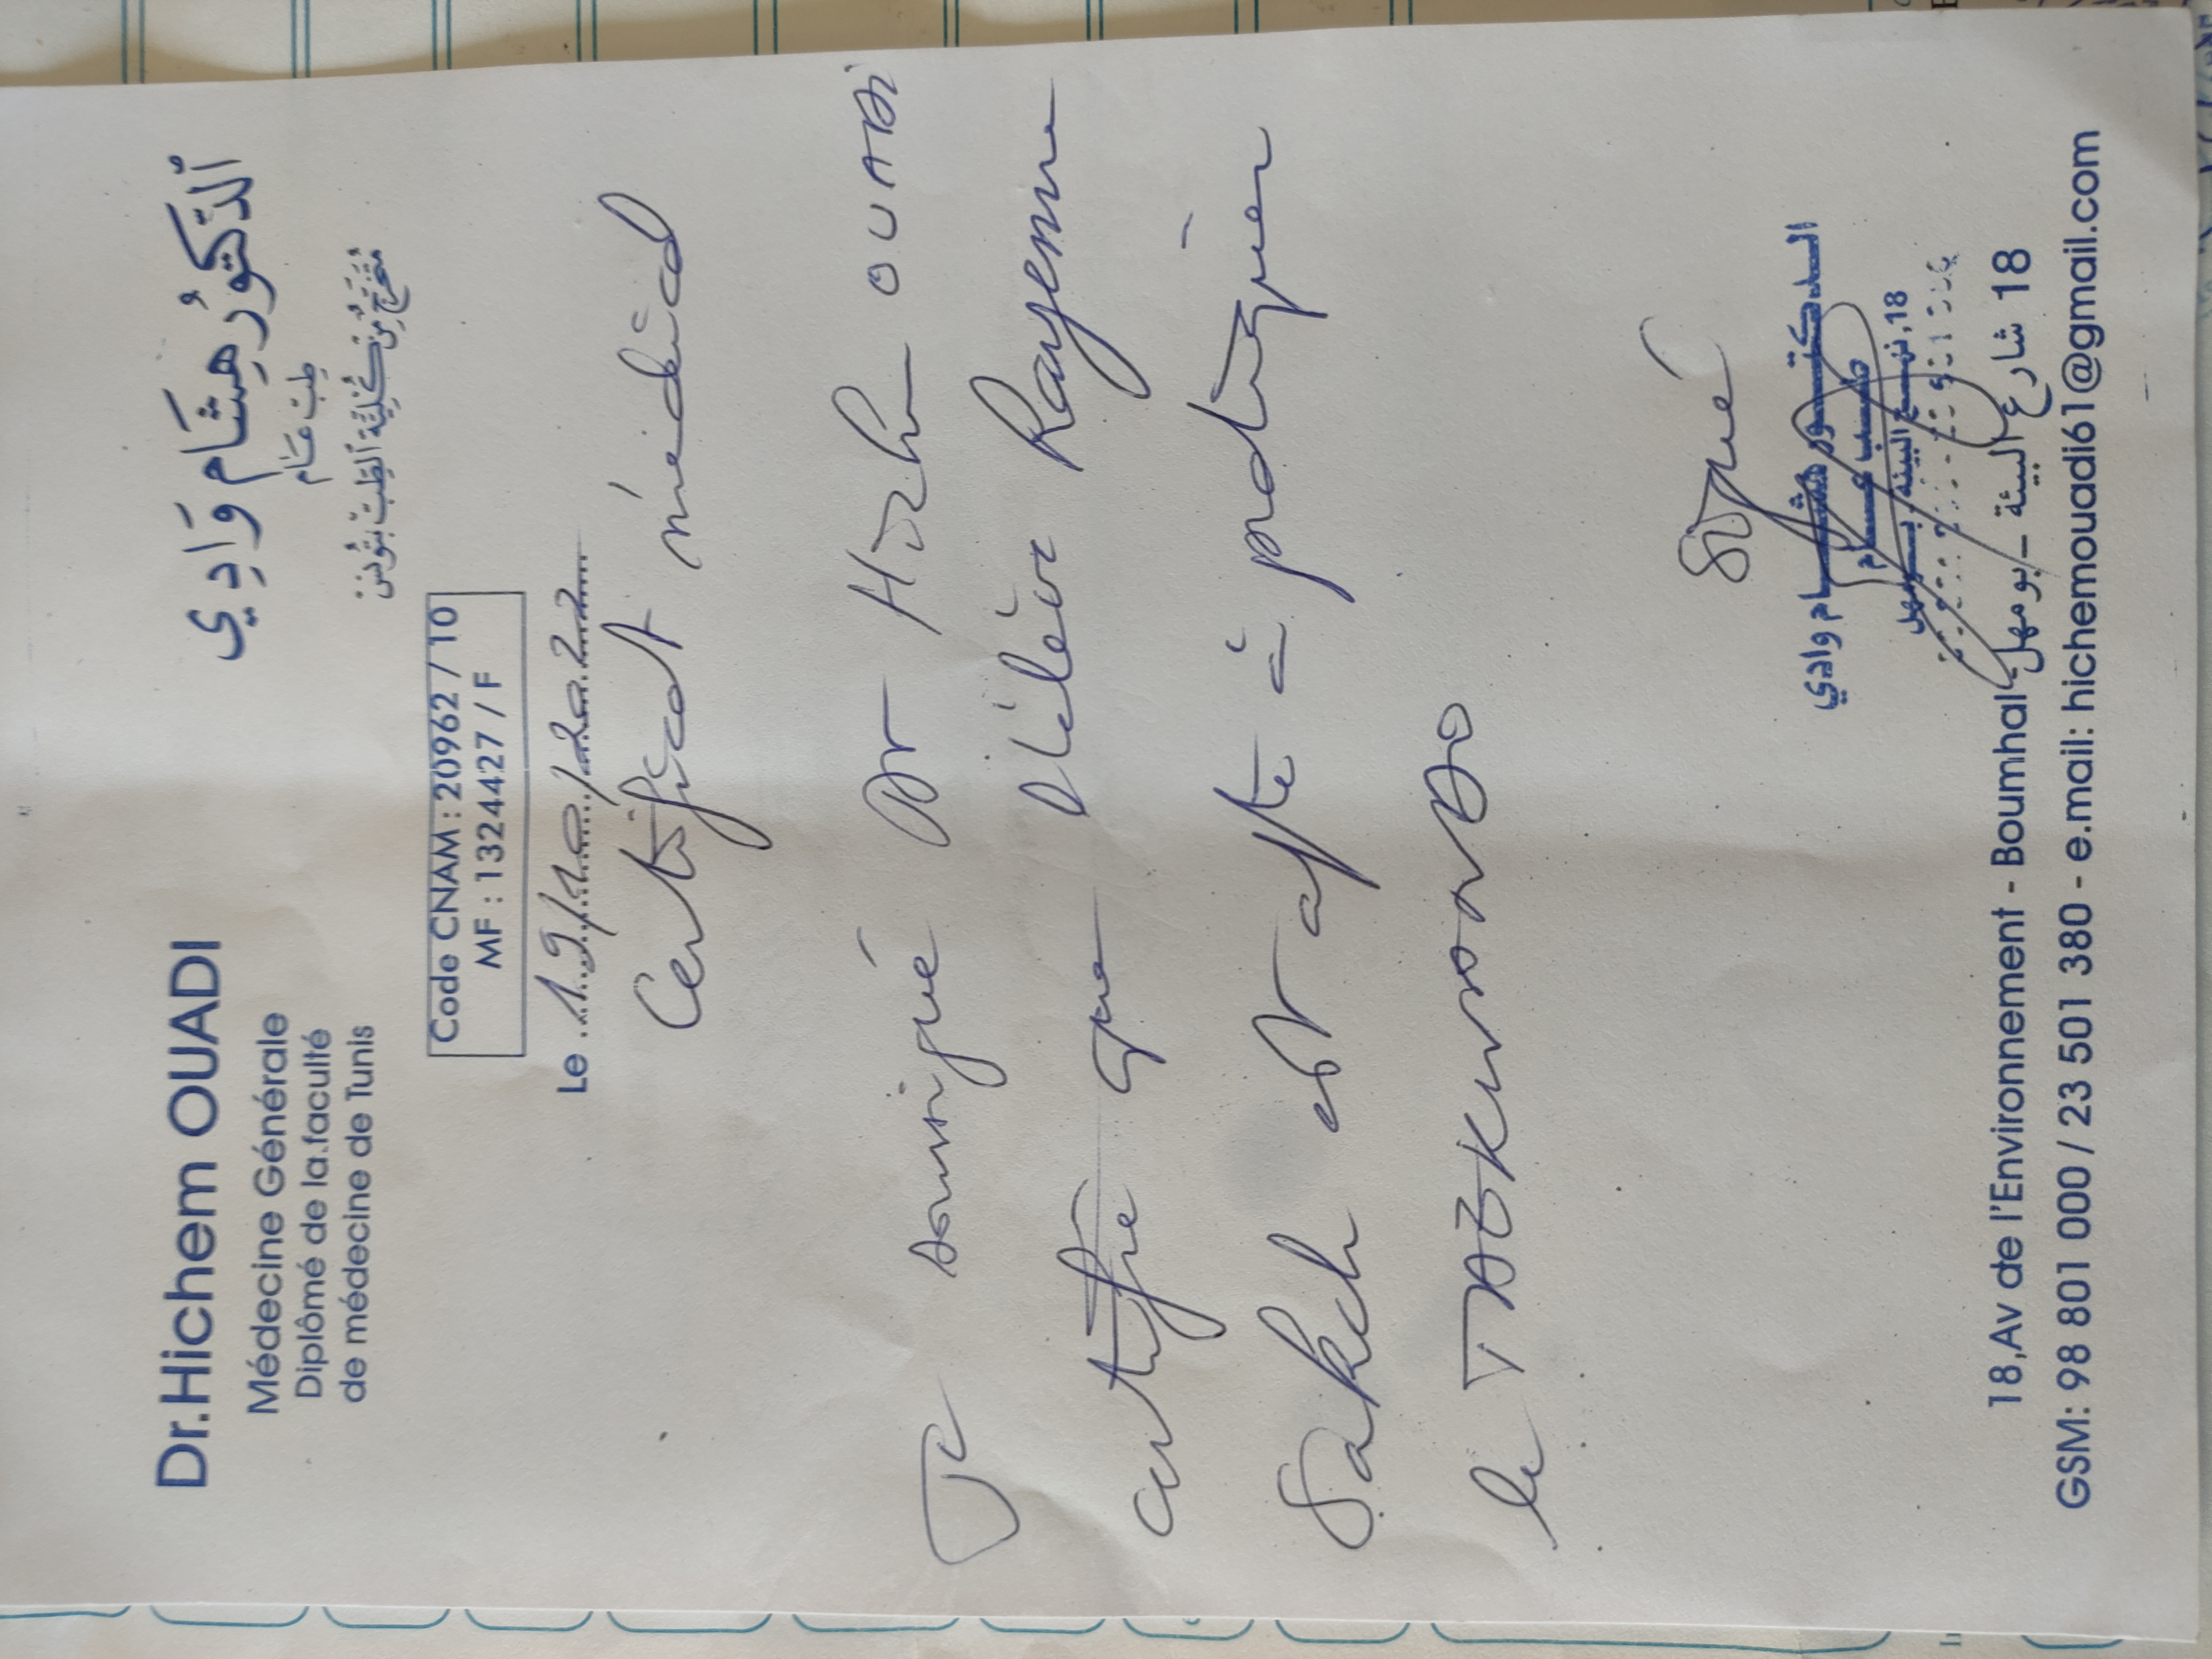 Dr.Hichem OUADI
Médecine Générale
Diplômé de la.faculté
de médecine de Tunis
الدكتور هشام وادي
طب عام
متخرج من كلية الطب بتونس
Code CNAM : 20962 / 10
MF : 1324427 / F
Le 19/10/2022
Certificat médical
Je soussigné Dr Hichem OUADI
certifie que l'élève Rayenne
Sakch est apte à pratiquer
le TAEKWONDO
Signé
الدكتور هشام وادي
طب عام
18، نهج البيئة بومهل
18,Av de l'Environnement - Boumhal - 18 شارع البيئة - بومهل
GSM: 98 801 000 / 23 501 380 - e.mail: hichemouadi61@gmail.com